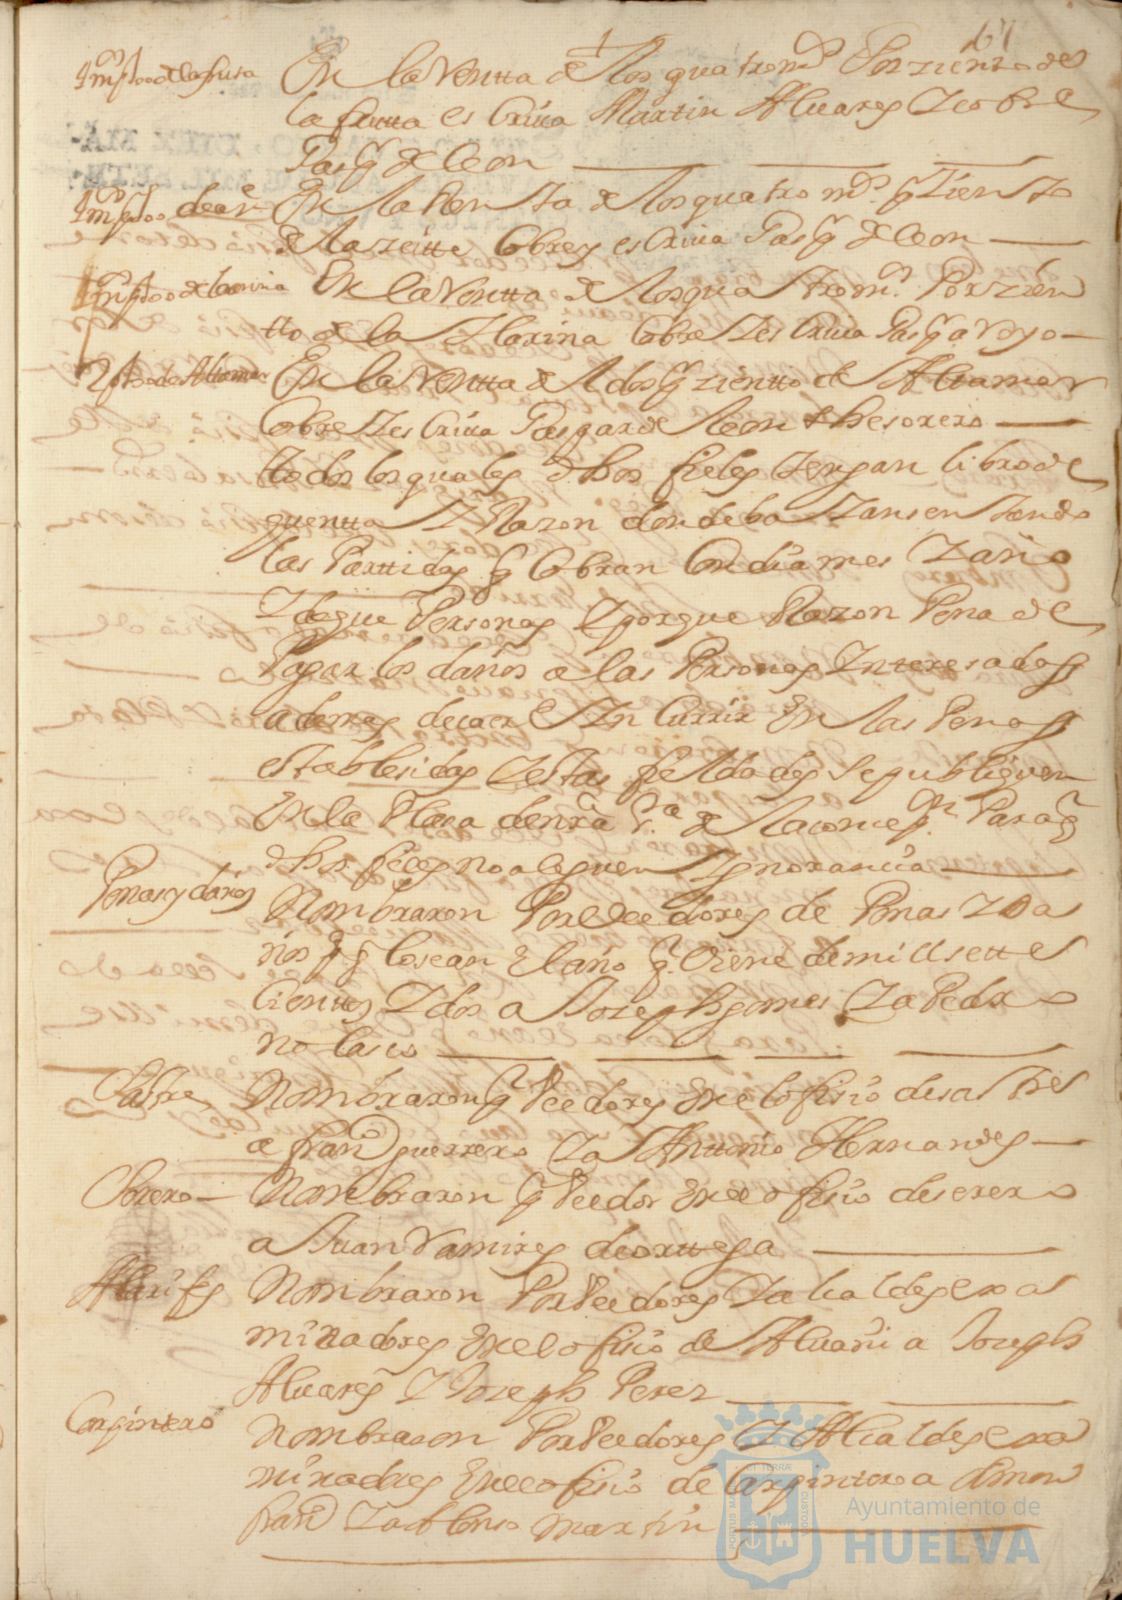 61
Impto de la fruta En la Rentta de los quatro ms Por ziento de
la frutta es criua Martin Aluares Y cobre
Gasp de leon
Impto de aze En la Renta de los quatro ms. p Ziento
de la zeitte Cobre y escriua Gasp de leon
Impto de la arina En la Rentta de los quatro ms. Por zien
tto de la Harina Cobre Y escriua Gasp arroyo
Ypto de Aliamar En la Rentta de los p zientto de Aliamar
Cobre Y escriua Gaspar de leon thesorero
ttodos los quales dhos fieles Tengan libro de
quentta Y Razon donde baYan sen tando
las Parttidas q Cobran Con dia mes Y año
Y de que Personas Y por que Razon Pena de
Pagar los daños a las Personas Interesadas
a demas de caer E Yn Currir En las Penas
establesidas Y estas fieldades se publiquen
En la Plaza de nra sa de la conсepn Para q
dhos fieles no aleguen Ygnorancia
Penas y daños Nombraron Por Veedores de Penas Y Da
ños p q lo sean El año q Viene de mill sette
sienttos Y dos a Joseph gomes Y a Pedro
no lasco
Sastre Nombraron p Veedores En el ofisio de sastres
a Fran guerrero Y a Anttonio Hernandes
Obrero Nombraron p Veedor En el ofisio de serero
a Juan Ramires de orttega
Alarifes Nombraron Por Veedores Y alcaldes exsa
minadores En el ofisio de Aluañi a Joseph
Aluares Y Joseph Peres
Carpintero Nombraron Por Veedores Y Alcaldes exsa
minadores En el ofisio de Carpintero a Simon
fran Y a Alonso Martin
PORTUS MARIS ET TERRÆ CUSTODIA
Ayuntamiento de
HUELVA